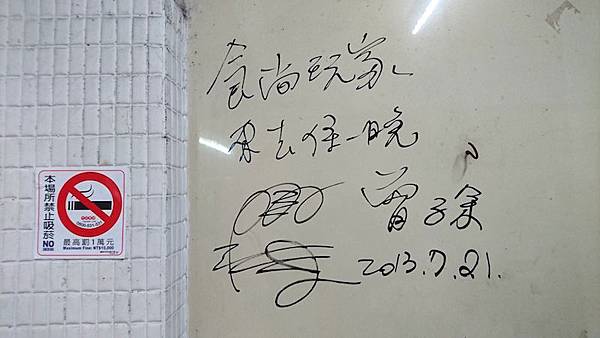 食尚玩家
來去住一晚
曾子余
2013.7.21.
本場所禁止吸菸
NO
最高罰1萬元
Maximum Fine: NT$10,000